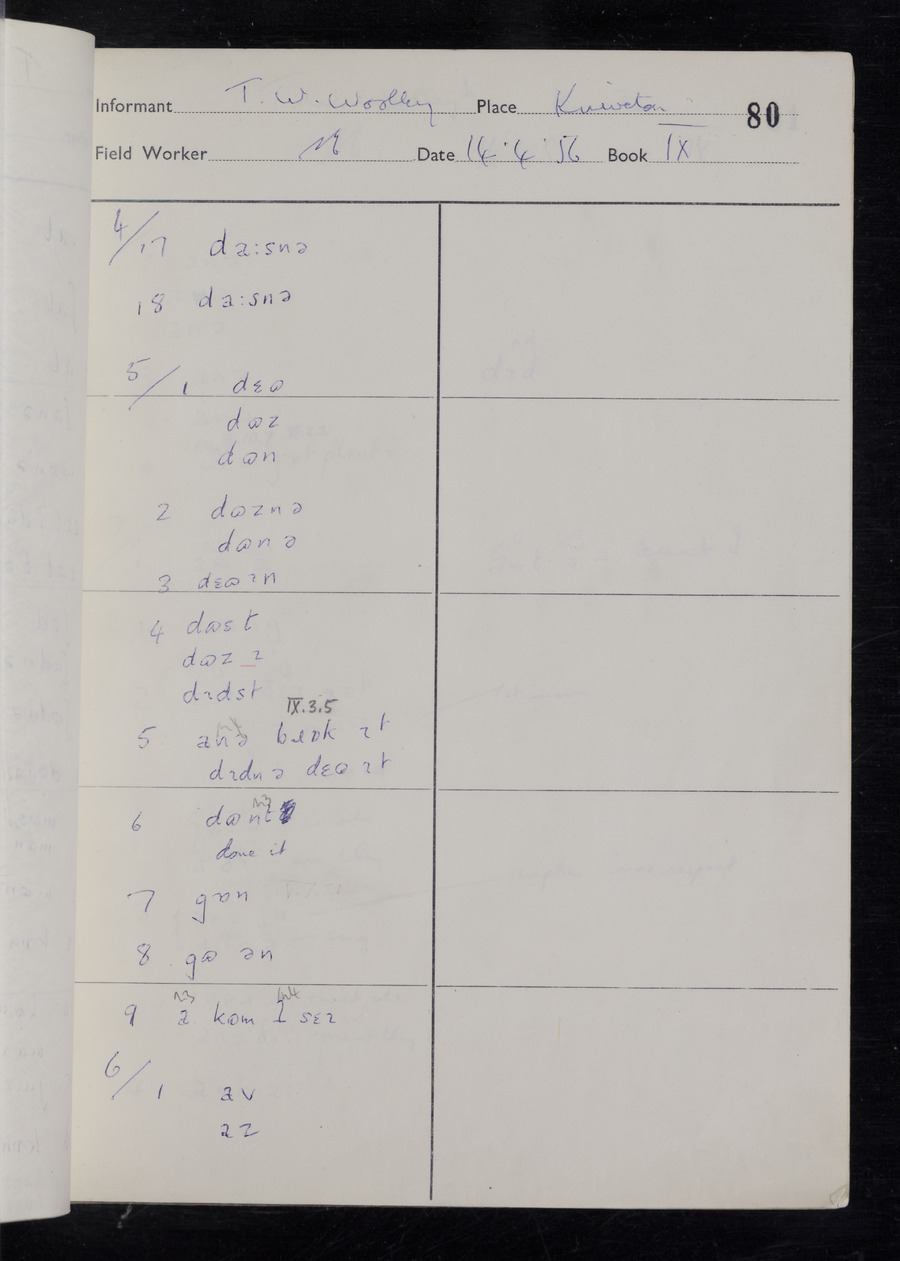 Informant T. W. Woolley Place Kniveton 80
Field Worker Date 14.4.56 Book IX
4/17 da:snə
18 da:snə
5/1 dɛɷ
dɷz
dɷn
2 dɷznə
dɷnə
3 dɛɷɪn
4 dɷst
dɷz ɪ
dɪdst
IX.3.5
5 anə brɒk ɪt
dɪdnə dɛɷ ɪt
6 dɷnt
done it
7 gɒn
8 gɷ ən
9 a kɷm sɛɪ
6/1 av
az